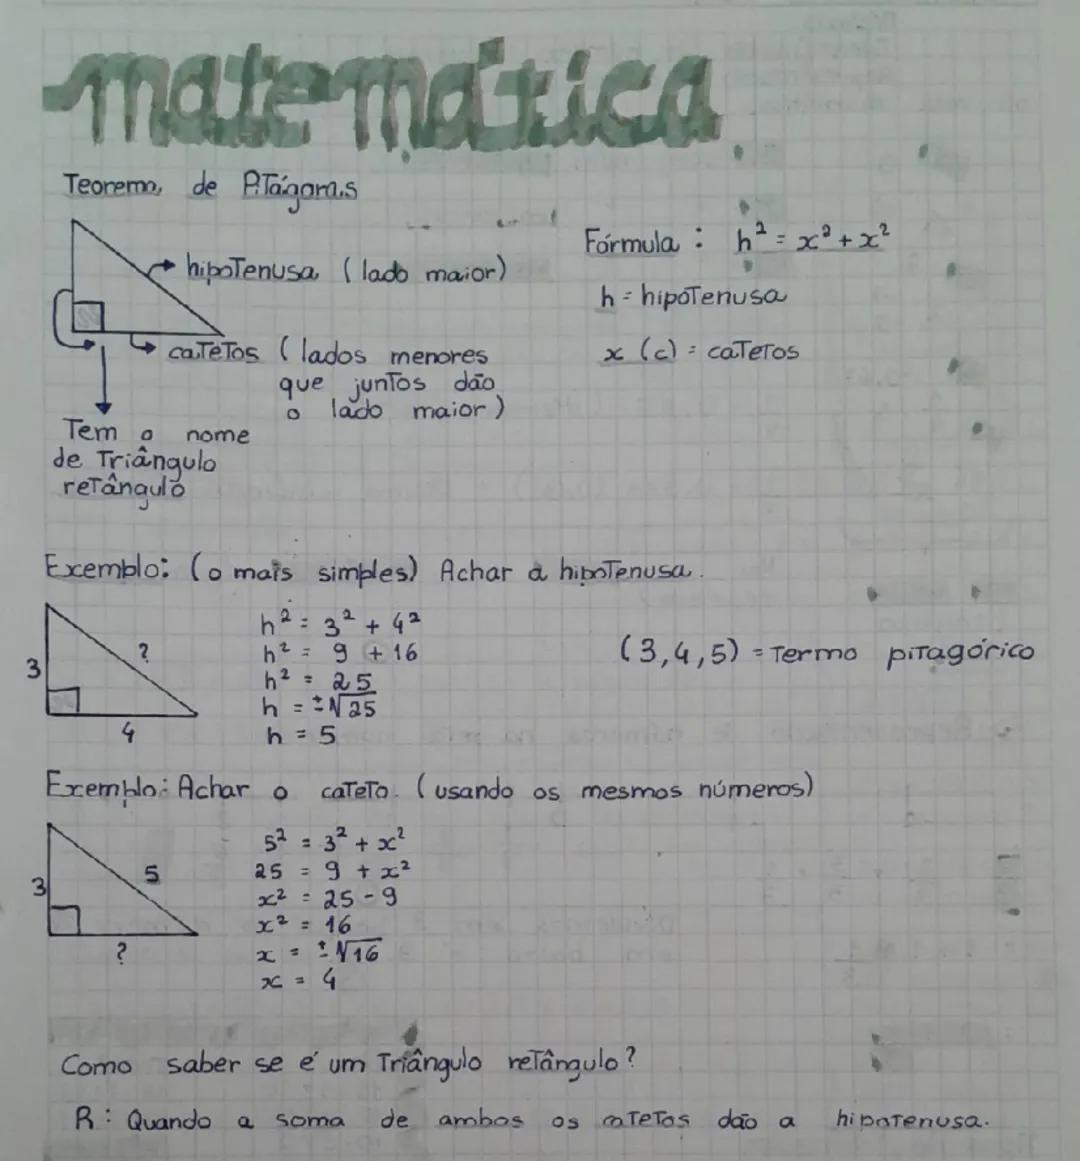 matemática
Teorema de Pitágoras
hipotenusa (lado maior)
catetos (lados menores
que juntos dão
o lado maior)
Tem o nome
de Triângulo
retângulo
Fórmula: h² = x² + x²
h = hipotenusa
x (c) = catetos
Exemplo: (o mais simples) Achar a hipotenusa.
3
?
4
h² = 3² + 4²
h² = 9 + 16
h² = 25
h = ±√25
h = 5
(3,4,5) = Termo pitagórico
Exemplo: Achar o cateto. (usando os mesmos números)
3
5
?
5² = 3² + x²
25 = 9 + x²
x² = 25 - 9
x² = 16
x = ±√16
x = 4
Como saber se é um Triângulo retângulo?
R: Quando a soma de ambos os catetos dão a hipotenusa.